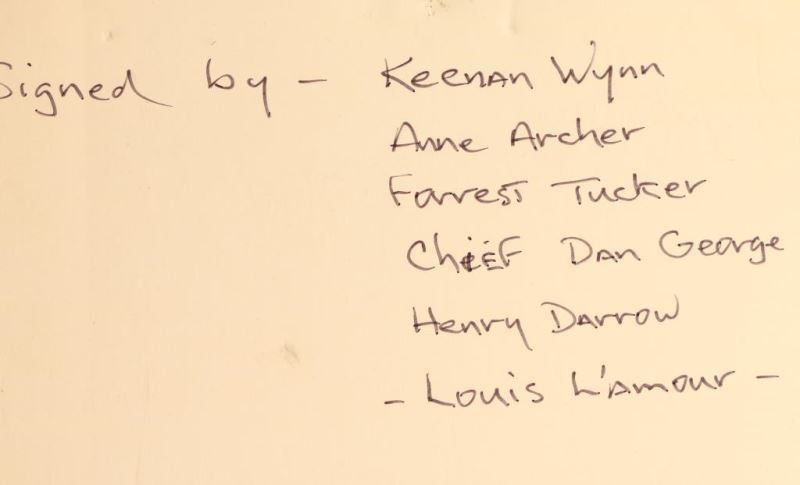 Signed by - Keenan Wynn
Anne Archer
Forrest Tucker
Chief Dan George
Henry Darrow
- Louis L'Amour -